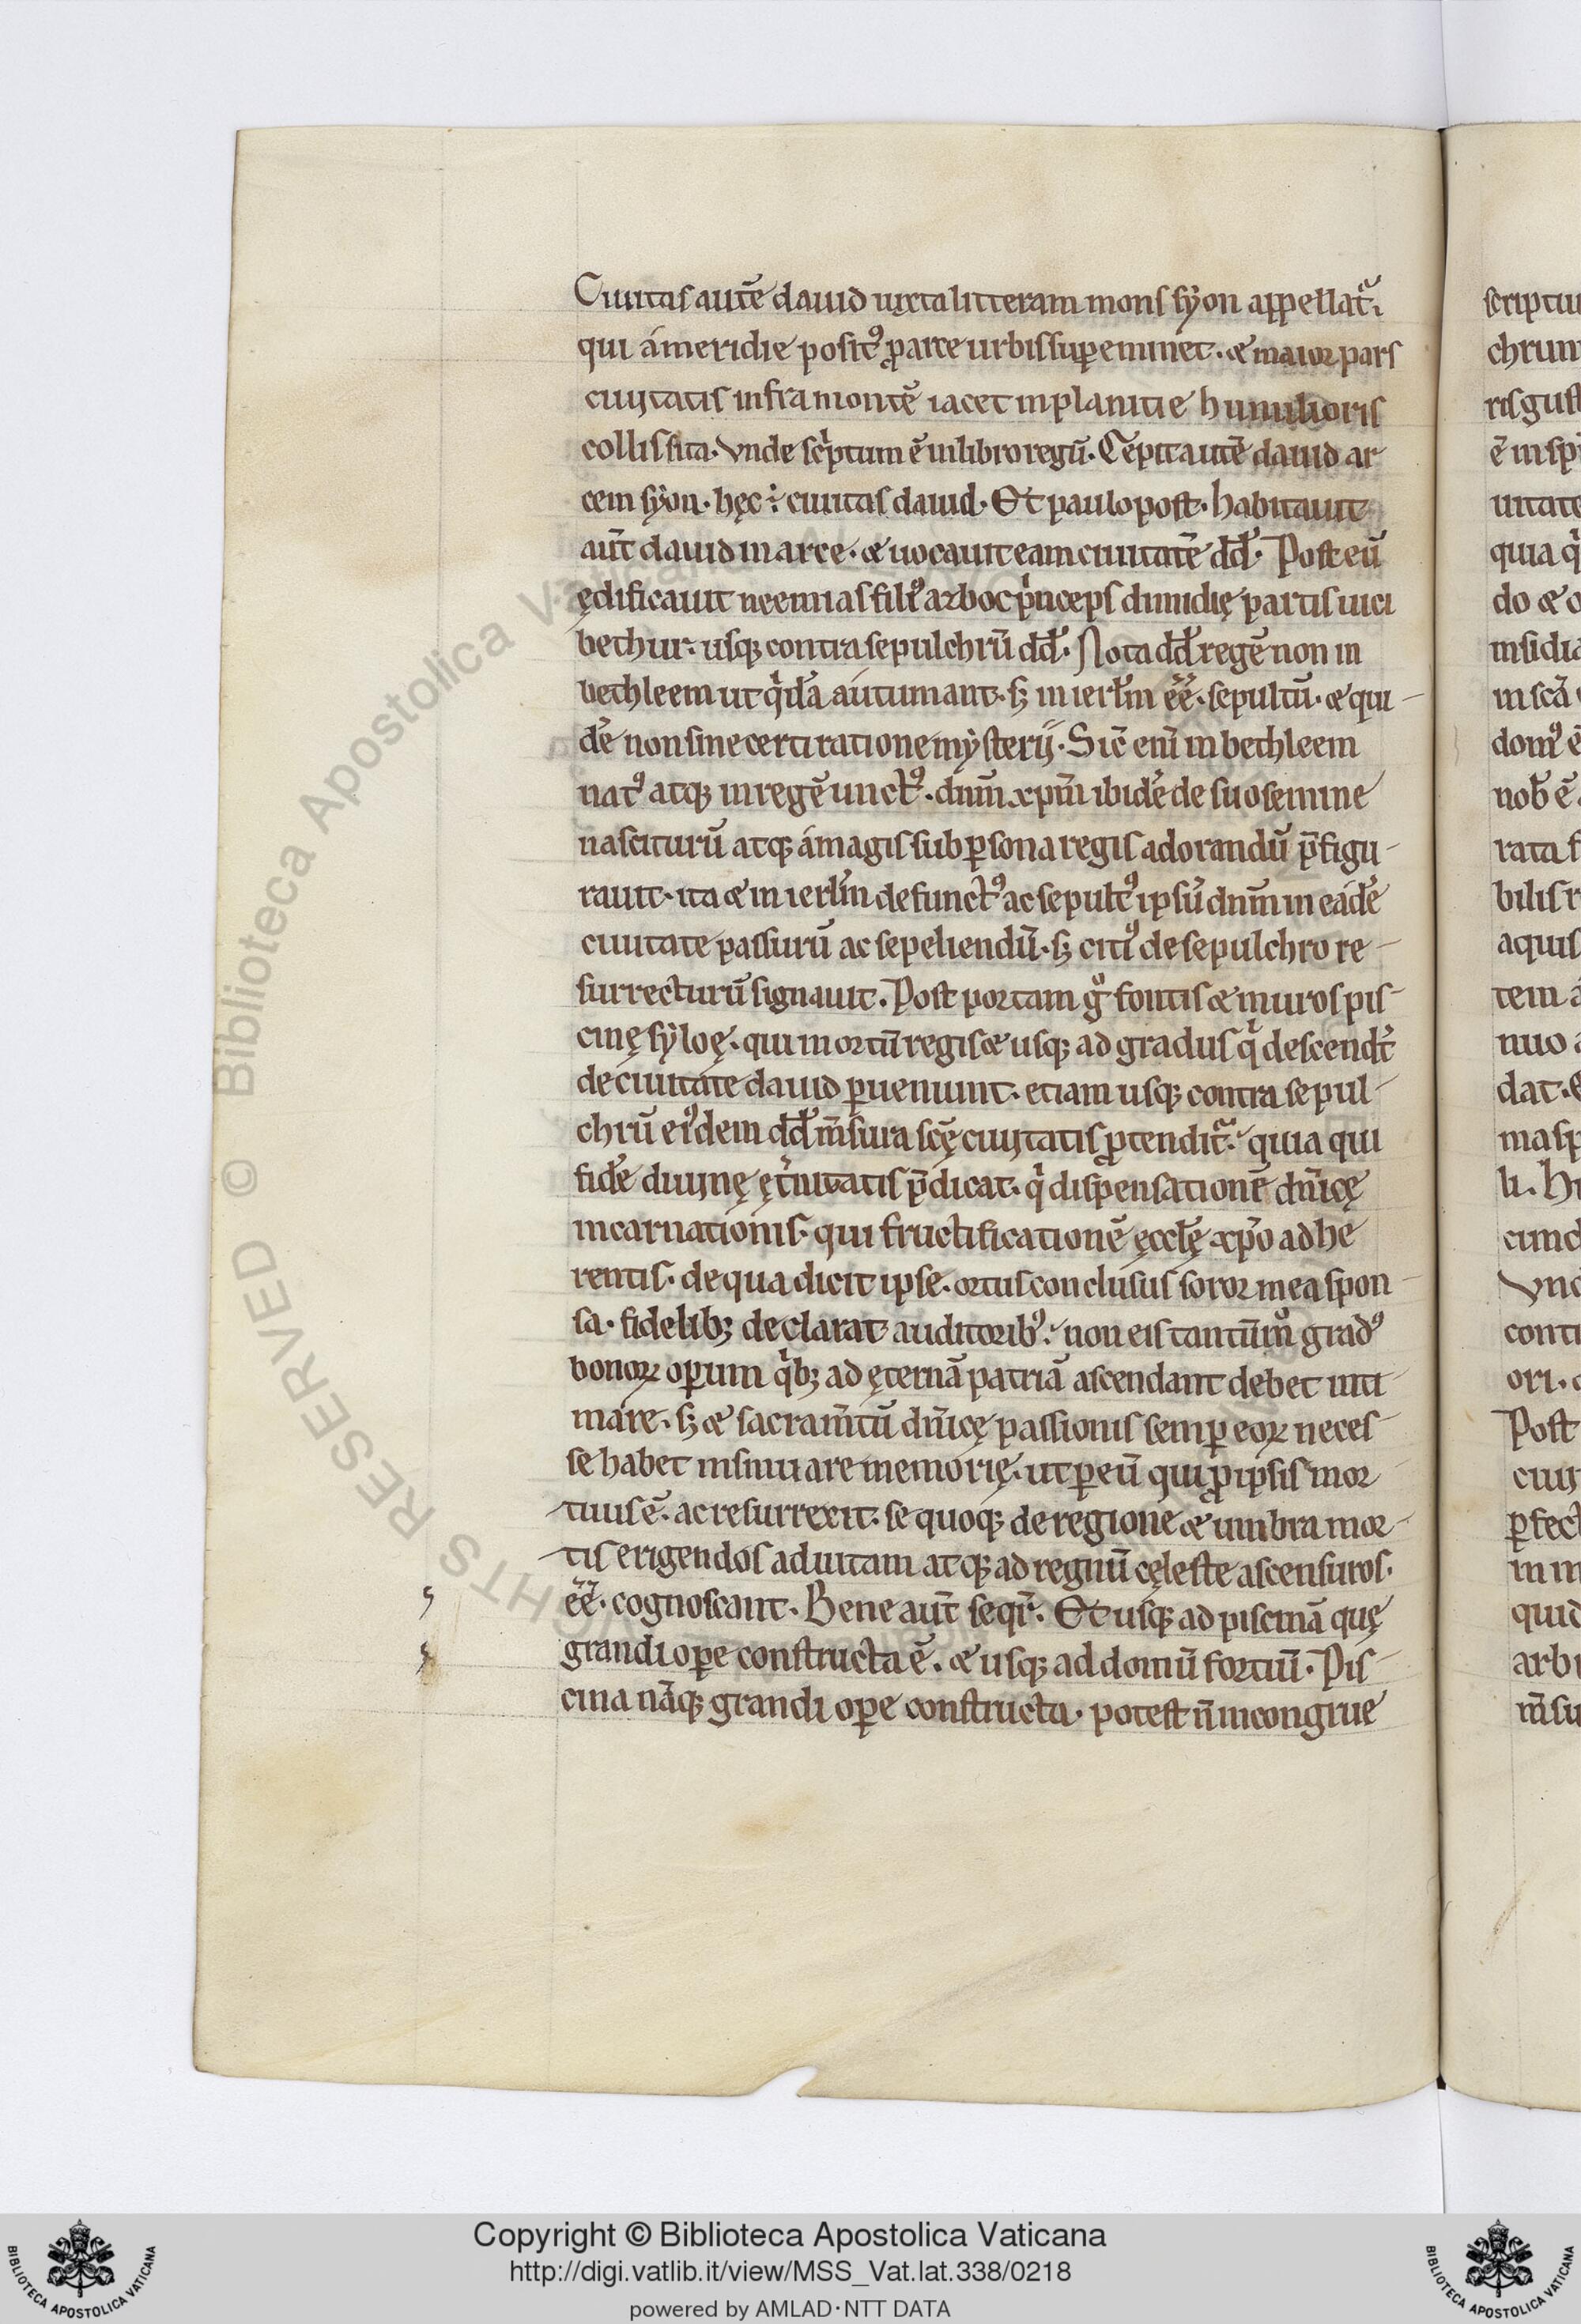 Ciuitas autē dauid iuxta litteram mons sẏon appellat᷑.
qui á meridie posit᷒ ꝓ arce urbis suꝑeminet. & maior pars
ciuitatis infra montē iacet in planitie humilioris
collis sita. Vnde scͥptum ē in libro regū. Cepit autē dauid ar
cem sẏon. hęc ÷ ciuitas dauid. Et paulo post. habitauit
aut̄ dauid in arce. & uocauit eam ciuitatē dd̄. Post eū
ędificauit neemias fili᷒ azboc pͥnceps dimidię partis uici
bethur. usq; contra sepulchrū dd̄. Nota dd̄ regē non in
bethleem ut qͥdā autumant. s; in ierlm̄ eē. sepultū. & qui-
dē non sine certi ratione mẏsterij. Sic̄ eni in bethleem
nat᷒ atq; in regē unct᷒. dnm̄ xpm̄ ibidē de suo semine
nasciturū atq; á magis sub ꝑsona regis adorandū p̄figu-
rauit. ita & in ierlm̄ defunct᷒ ac sepult᷒ ipsū dnm̄ in eadē
ciuitate passurū ac sepeliendū. s; citi᷒ de sepulchro re-
surrecturū signauit. Post portam gͦ fontis & muros pis-
cinę sẏloę. qui in ortū regis & usq; ad gradus qͥ descendt̄
de ciuitate dauid ꝑueniunt. etiam usq; contra sepul-
chrū ei᷒dem dd̄ m̄sura scę̄ ciuitatis ꝓtendit᷑. quia qui
fidē diuinę ęt̄nitatis p̄dicat. qͥ dispensationē dn̄icę
incarnationis. qui fructificationē ęcclę̄ xp̄o adhe
rentis. de qua dicit ipse. ortus conclusus soror mea spon-
sa. fidelib; declarat auditorib᷒. non eis tantūm̊ grad᷒
bonoꝝ oꝑum qͥb; ad ęternā patriā ascendant debet inti
mare. s; & sacram̄tū dn̄icę passionis semꝑ eoꝝ neces-
se habet insinuare memorię. ut ꝑ eū qui ꝓ ipsis mor
tuus ē. ac resurrexit. se quoq; de regione & umbra mor-
tis erigendos ad uitam atq; ad regnū cęleste ascensuros.
eē. cognoscant. Bene aut̄ seqr̄. Et usq; ad piscinā quę
grandi oꝑe constructa ē. & usq; ad domū fortiū. Pis-
cina nāq; grandi oꝑe constructa. potest n̄ incongrue
Copyright © Biblioteca Apostolica Vaticana
http://digi.vatlib.it/view/MSS_Vat.lat.338/0218
powered by AMLAD·NTT DATA